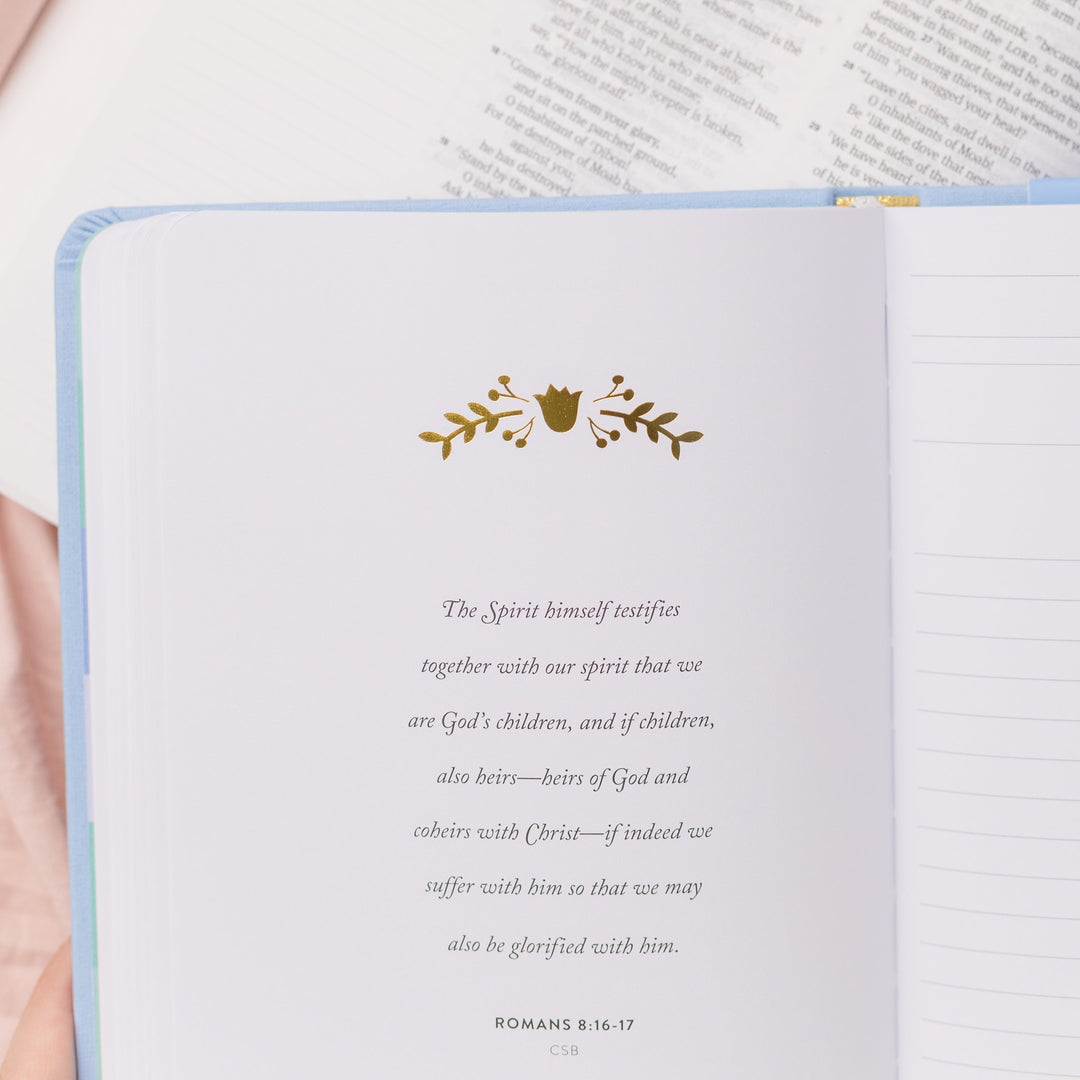 whose name is the
of Moab is near at hand,
his affliction hastens swiftly.
for him, all you who are around him,
and all who know his name;
say, "How the mighty scepter is broken,
the glorious staff."
18 "Come down from your glory,
and sit on the parched ground,
O inhabitant of Dibon!
For the destroyer of Moab has
against you;
he has destroyed
19 "Stand by the
O inhab
Ask
him drunk, "because
against the LORD, so tha
wallow in his vomit, and he too sha
derision. 27 "Was not Israel a derision to
he found among thieves, that whenever yo
of him you wagged your head?
28 "Leave the cities, and dwell in the
O inhabitants of Moab!
Be like the dove that nest
in the sides of the
29 "We have heard
he is very
of his
The Spirit himself testifies
together with our spirit that we
are God's children, and if children,
also heirs—heirs of God and
coheirs with Christ—if indeed we
suffer with him so that we may
also be glorified with him.
ROMANS 8:16-17
CSB